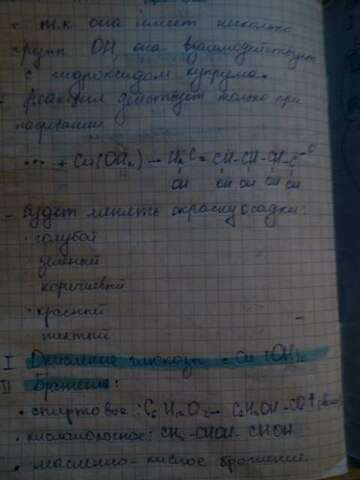 - т.к. она имеет несколько
групп OH, она взаимодействует
с гидроксидом купрума.
- реакция действует только при
нагревании
... + Cu(OH₂) → H₂C - CH-CH-CH-C
OH OH OH OH OH
- Будет менять окраску осадки:
· голубой
зелёный
коричневый
· красный
желтый
I Окисление глюкозы с Cu(OH)₂
II Брожение:
• спиртовое: C₆H₁₂O₆→ C₂H₅OH
• кисломолочное: CH₃-CHOH-
• масленно-кислое брожение.